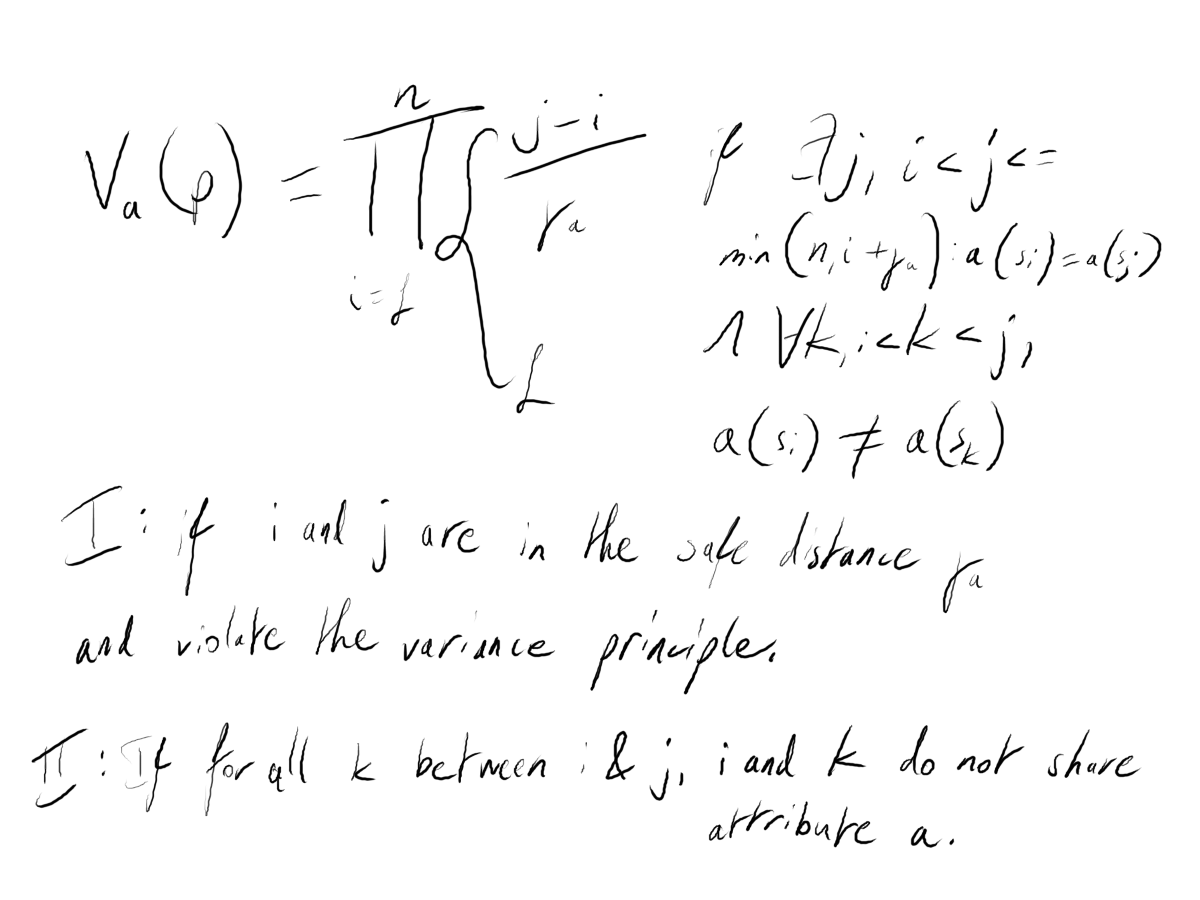 V_a(φ) = ∏_{i=1}^{n} { (j-i)/γ_a if ∃j, i < j <=
min(n, i + γ_a) : a(s_i) = a(s_j)
∧ ∀k, i < k < j,
1 a(s_i) ≠ a(s_k)
I : if i and j are in the safe distance γ_a
and violate the variance principle.
II : If for all k between i & j, i and k do not share
attribute a.